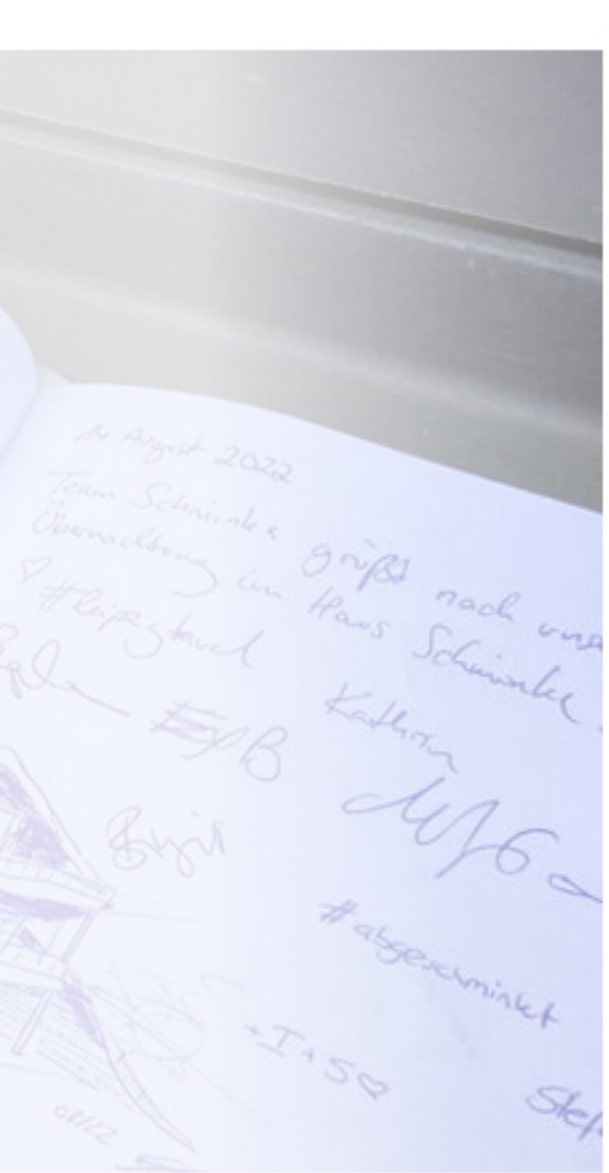 14 August 2022
Team Schminke grüßt nach unse
Übernachtung im Haus Schminke.
♡ #leipzigtravel
Kathrin
Birgit
#abgeschminkt
+ I + S ♡
Stef
08/22